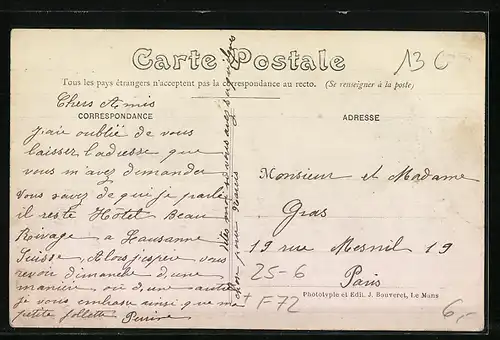 Carte Postale
13 C
Tous les pays étrangers n'acceptent pas la correspondance au recto. (Se renseigner à la poste)
Chers Amis
CORRESPONDANCE
ADRESSE
J'ai oublié de vous
laisser l'adresse que
vous m'avez demander
vous savez de qui je parle
il reste Hotel Beau
Rivage a Lausanne
Suisse, Alors j'espere vous
revoir dimanche d'une
maniere ou d'une autre
je vous embrasse ainsi que ma
petite follette Perrine
dites moi si vous avez
Monsieur et Madame
Gras
19 rue Mesnil 19
Paris
25-6
+ F72
Phototypie et Edit. J. Bouveret, Le Mans
6,-